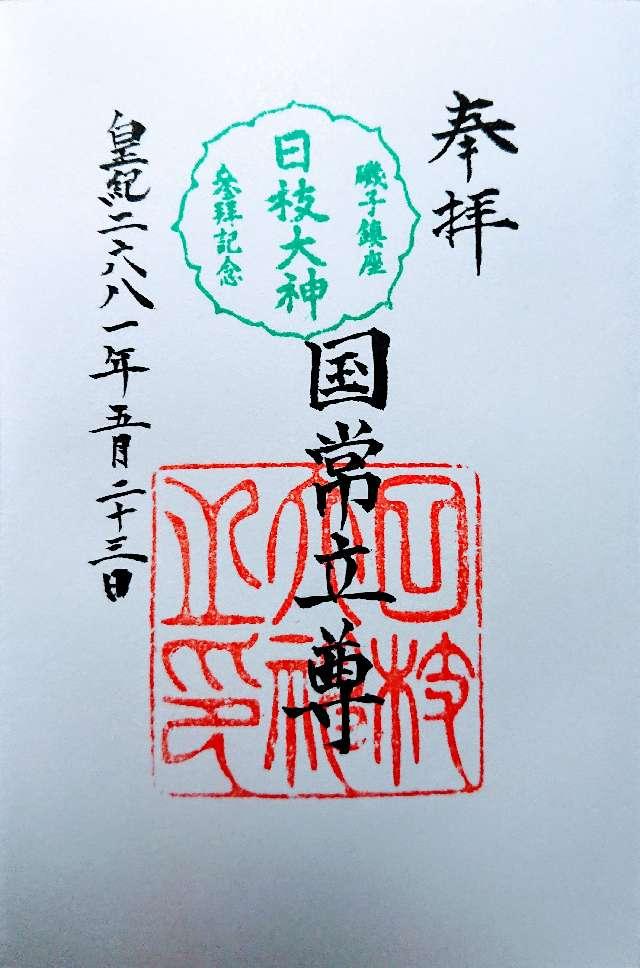 奉拝
磯子鎮座
日枝大神
参拝記念
国常立尊
日枝
大神
之印
皇紀二六八一年五月二十三日